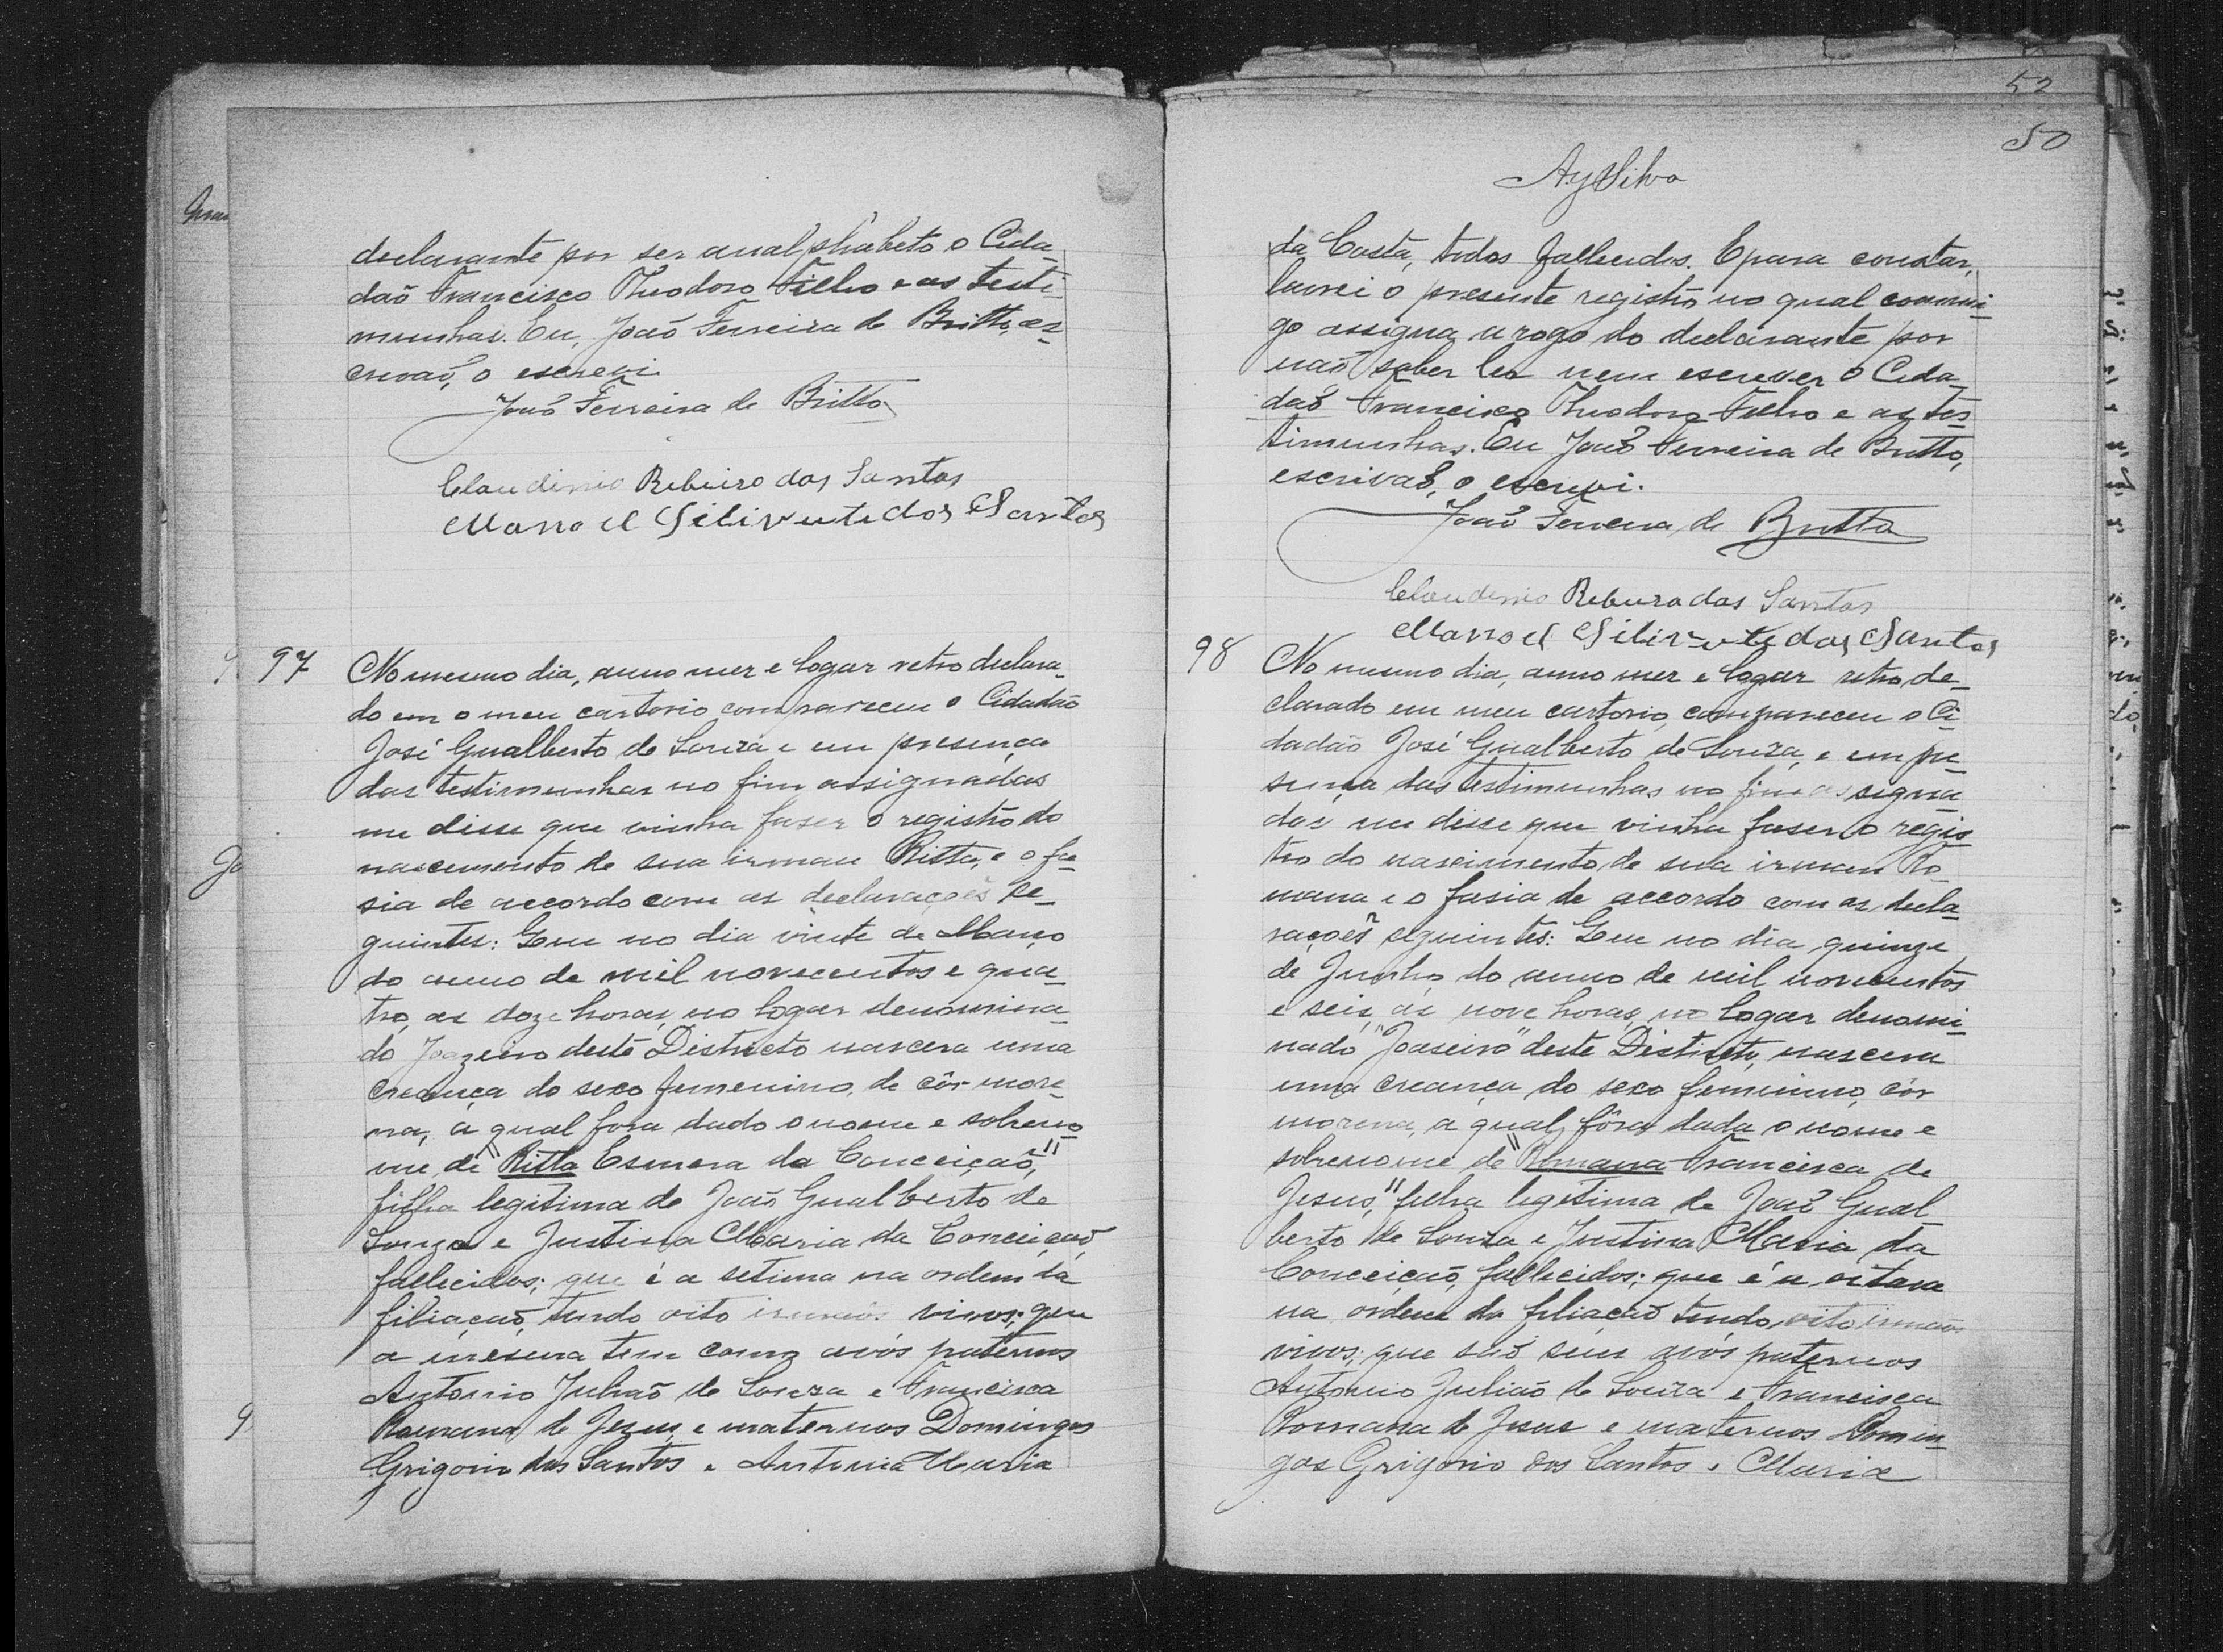 declarante por ser analphabeto o Cida-
dão Francisco Theodoro Filho e as testi-
munhas. Eu, João Ferreira de Britto, es-
crivão, o escrevi.
João Ferreira de Britto
Claudinio Ribeiro dos Santos
Manoel dos Santos
97 No mesmo dia, anno mez e logar retro declara-
do em o meu cartorio compareceu o Cidadão
José Gualberto de Souza e em presença
das testimunhas no fim assignadas
me disse que vinha faser o registro do
nascimento de sua irman Ritta, e o fa-
sia de accordo com as declarações se-
guintes: Que no dia vinte de Março
do anno de mil novecentos e qua-
tro, as doze horas, no logar denomina-
do Joazeiro deste Districto nascera uma
creança do sexo femenino, de côr more-
na, a qual fora dado o nome e sobreno-
me de "Ritta Esmera da Conceição,"
filha legitima de João Gualberto de
Souza e Justina Maria da Conceição,
fallecidos; que é a setima na ordem da
filiação, tendo oito irmãos vivos; que
a mesma tem como avós paternos
Antonio Julião de Souza e Francisca
Romana de Jesus, e maternos Domingos
Grigorio dos Santos e Antonia Maria
52
50
AySilva
da Costa, todos fallecidos. E para constar,
lavrei o presente registro no qual commi-
go assigna a rogo do declarante por
não saber ler nem escrever o Cida-
dão Francisco Theodoro Filho e as tes-
timunhas. Eu João Ferreira de Britto,
escrivão, o escrevi.
João Ferreira de Britto
Claudinio Ribeiro dos Santos
Manoel dos Santos
98 No mesmo dia, anno mez e logar retro de-
clarado em meu cartorio, compareceu o Ci-
dadão José Gualberto de Souza, e em pre-
sença das testimunhas no fim assigna-
das me disse que vinha faser o regis-
tro do nascimento de sua irman Ro-
mana e o fasia de accordo com as decla-
rações seguintes: Que no dia quinze
de Junho do anno de mil novecentos
e seis, ás nove horas, no logar denomi-
nado "Joaseiro" deste Districto, nascera
uma creança do sexo feminino, côr
morena, a qual fôra dada o nome e
sobrenome de "Romana Francisca de
Jesus," filha legitima de João Gual-
berto de Souza e Justina Maria da
Conceição, fallecidos; que é a oitava
na ordem da filiação tendo oito irmãos
vivos; que são seus avós paternos
Antonio Julião de Souza e Francisca
Romana de Jesus e maternos Domin-
gos Grigorio dos Santos e Maria